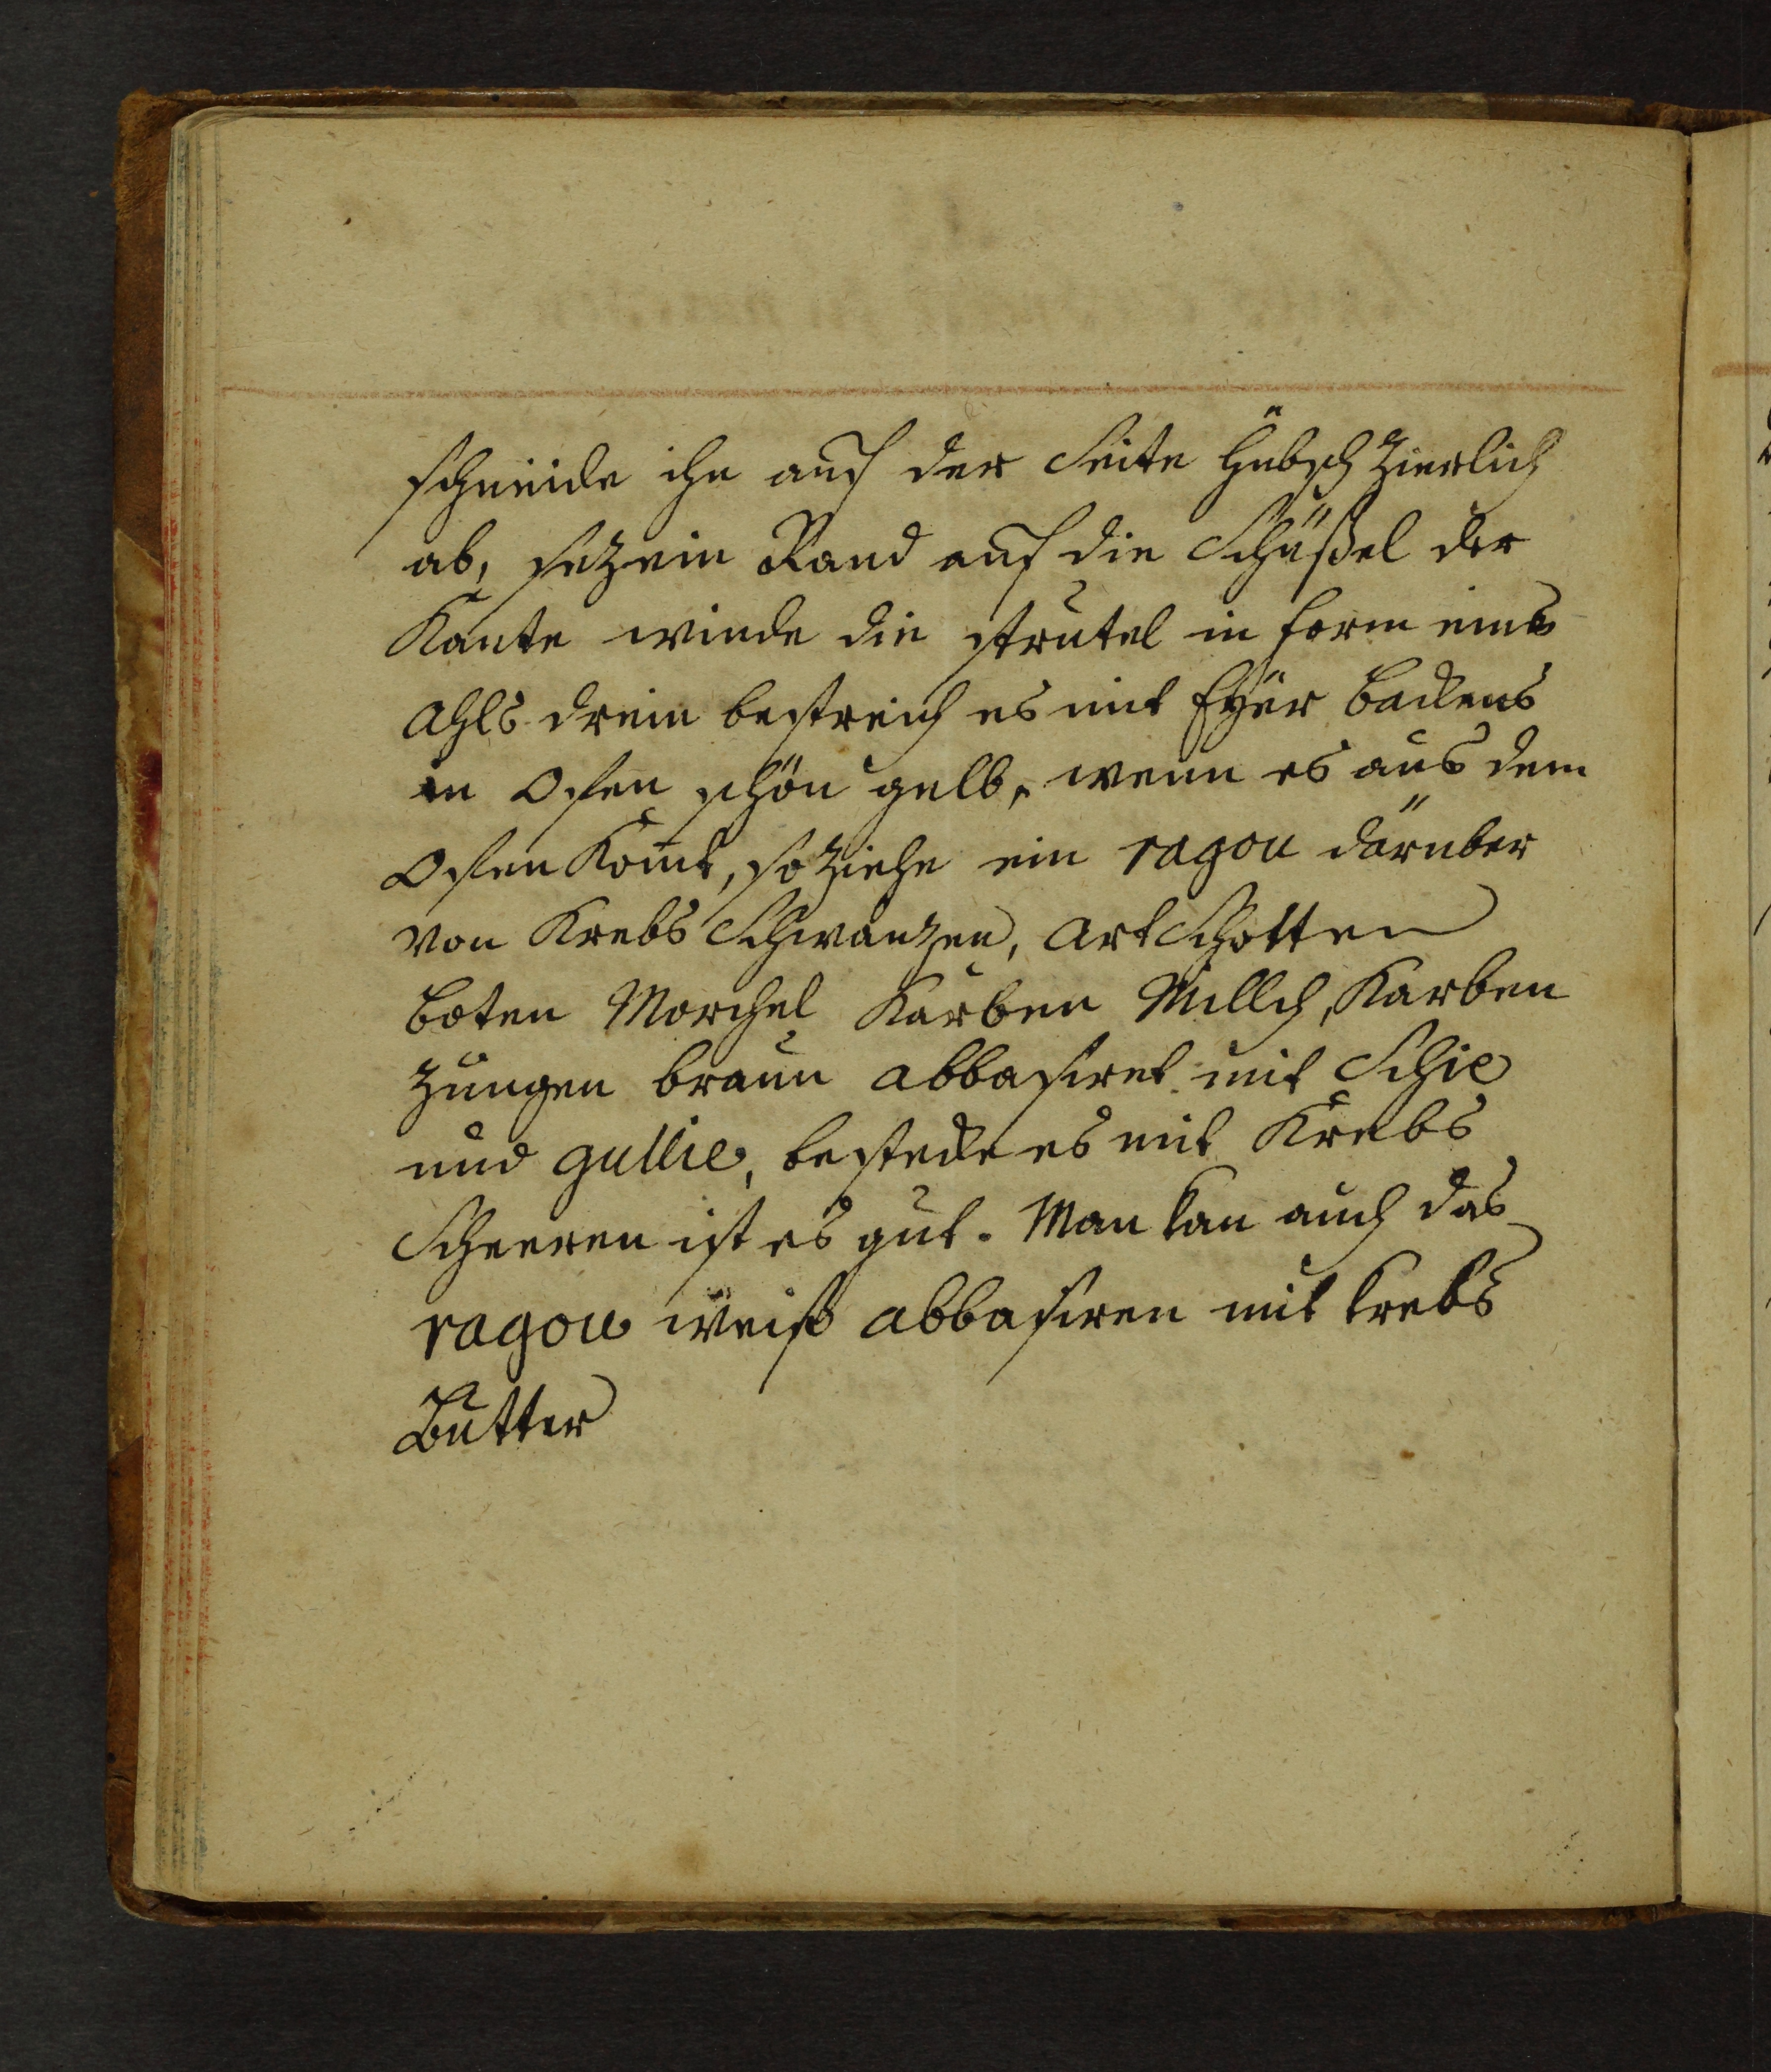 schneide ihn auf der Seite hübsch zierlich
ab, sez ein Rand auf die Schüßel der
Kante winde die strutel in form eines
Ahls drein bestreich es mit Eÿer backens
in Ofen schön gelb, wenn es aus dem
Ofen komt, so ziehe ein ragou darüber
von Krebs Schwanzen, Artschotten
boten Morchel Karben Millch, Karben
zungen braun abbasiret mit Schie
und gullie, bestecke es mit Krebs
Scheeren ist es gut. Man kan auch das
ragou weiß abbasiren mit krebs
Butter